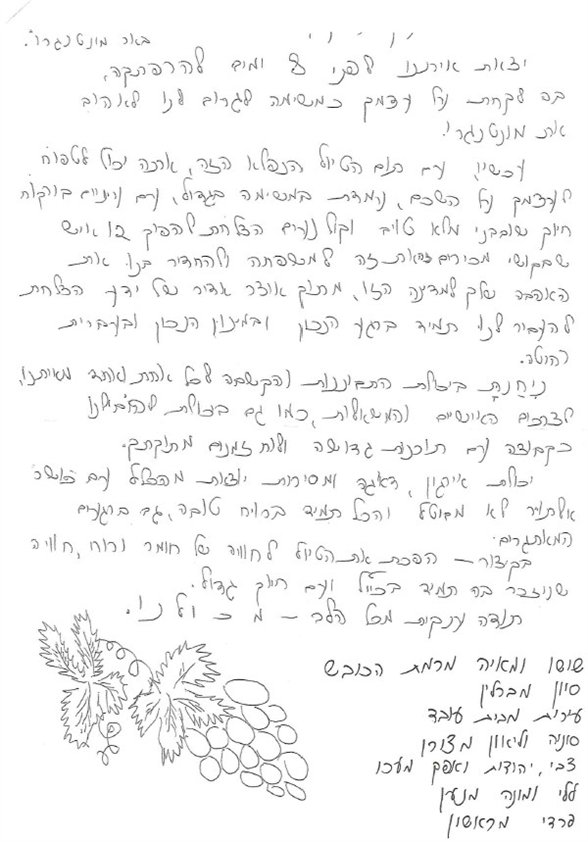 באר מונטנגרו.
יצאת איתנו לפני 8 ימים להרפתקה,
בה לקחת על עצמך כמשימה לגרום לנו לאהוב
את מונטנגרו.
עכשיו, עם תום הטיול הנפלא הזה, אתה יכול לטפוח
לעצמך על השכם, עמדת במשימה בגדול, עם עיניים בורקות
חיוך שובבני מלא טוב וקול נעים הצלחת להפוך 12 איש
שבקושי מכירים זה את זה למשפחה ולהחדיר בנו את
האהבה שלך למדינה הזו, מתוך אוצר אדיר של ידע הצלחת
להעביר לנו תמיד ברגע הנכון ובמינון הנכון ובעברית
רהוטה.
ניחנת ביכולת התבוננות והקשבה לכל אחת ואחד מאיתנו,
לצרכים האישיים והמשאלות, כמו גם ביכולת להובילנו
כקבוצה עם תוכנית גדושה ולוח זמנים מתוקתק.
יכולת אירגון, דאגה ומסירות יוצאת מהכלל עם כושר
אילתור לא מבוטל והכל תמיד ברוח טובה, גם ברגעים
המאתגרים.
בקיצור – הפכת את הטיול לחוויה של חומר ורוח, חוויה
שניזכר בה תמיד בכייף ועם חיוך גדול.
תודה ענקית מכל הלב – מ כ ו ל נ ו.
שושו ומאיה מרמת הכובש
סיון מברלין
עירית מבית עובד
סוניה וליאון מצורן
צבי, יהודית ואפק מעכו
ללי ומונה מנען
פרדי מראשון